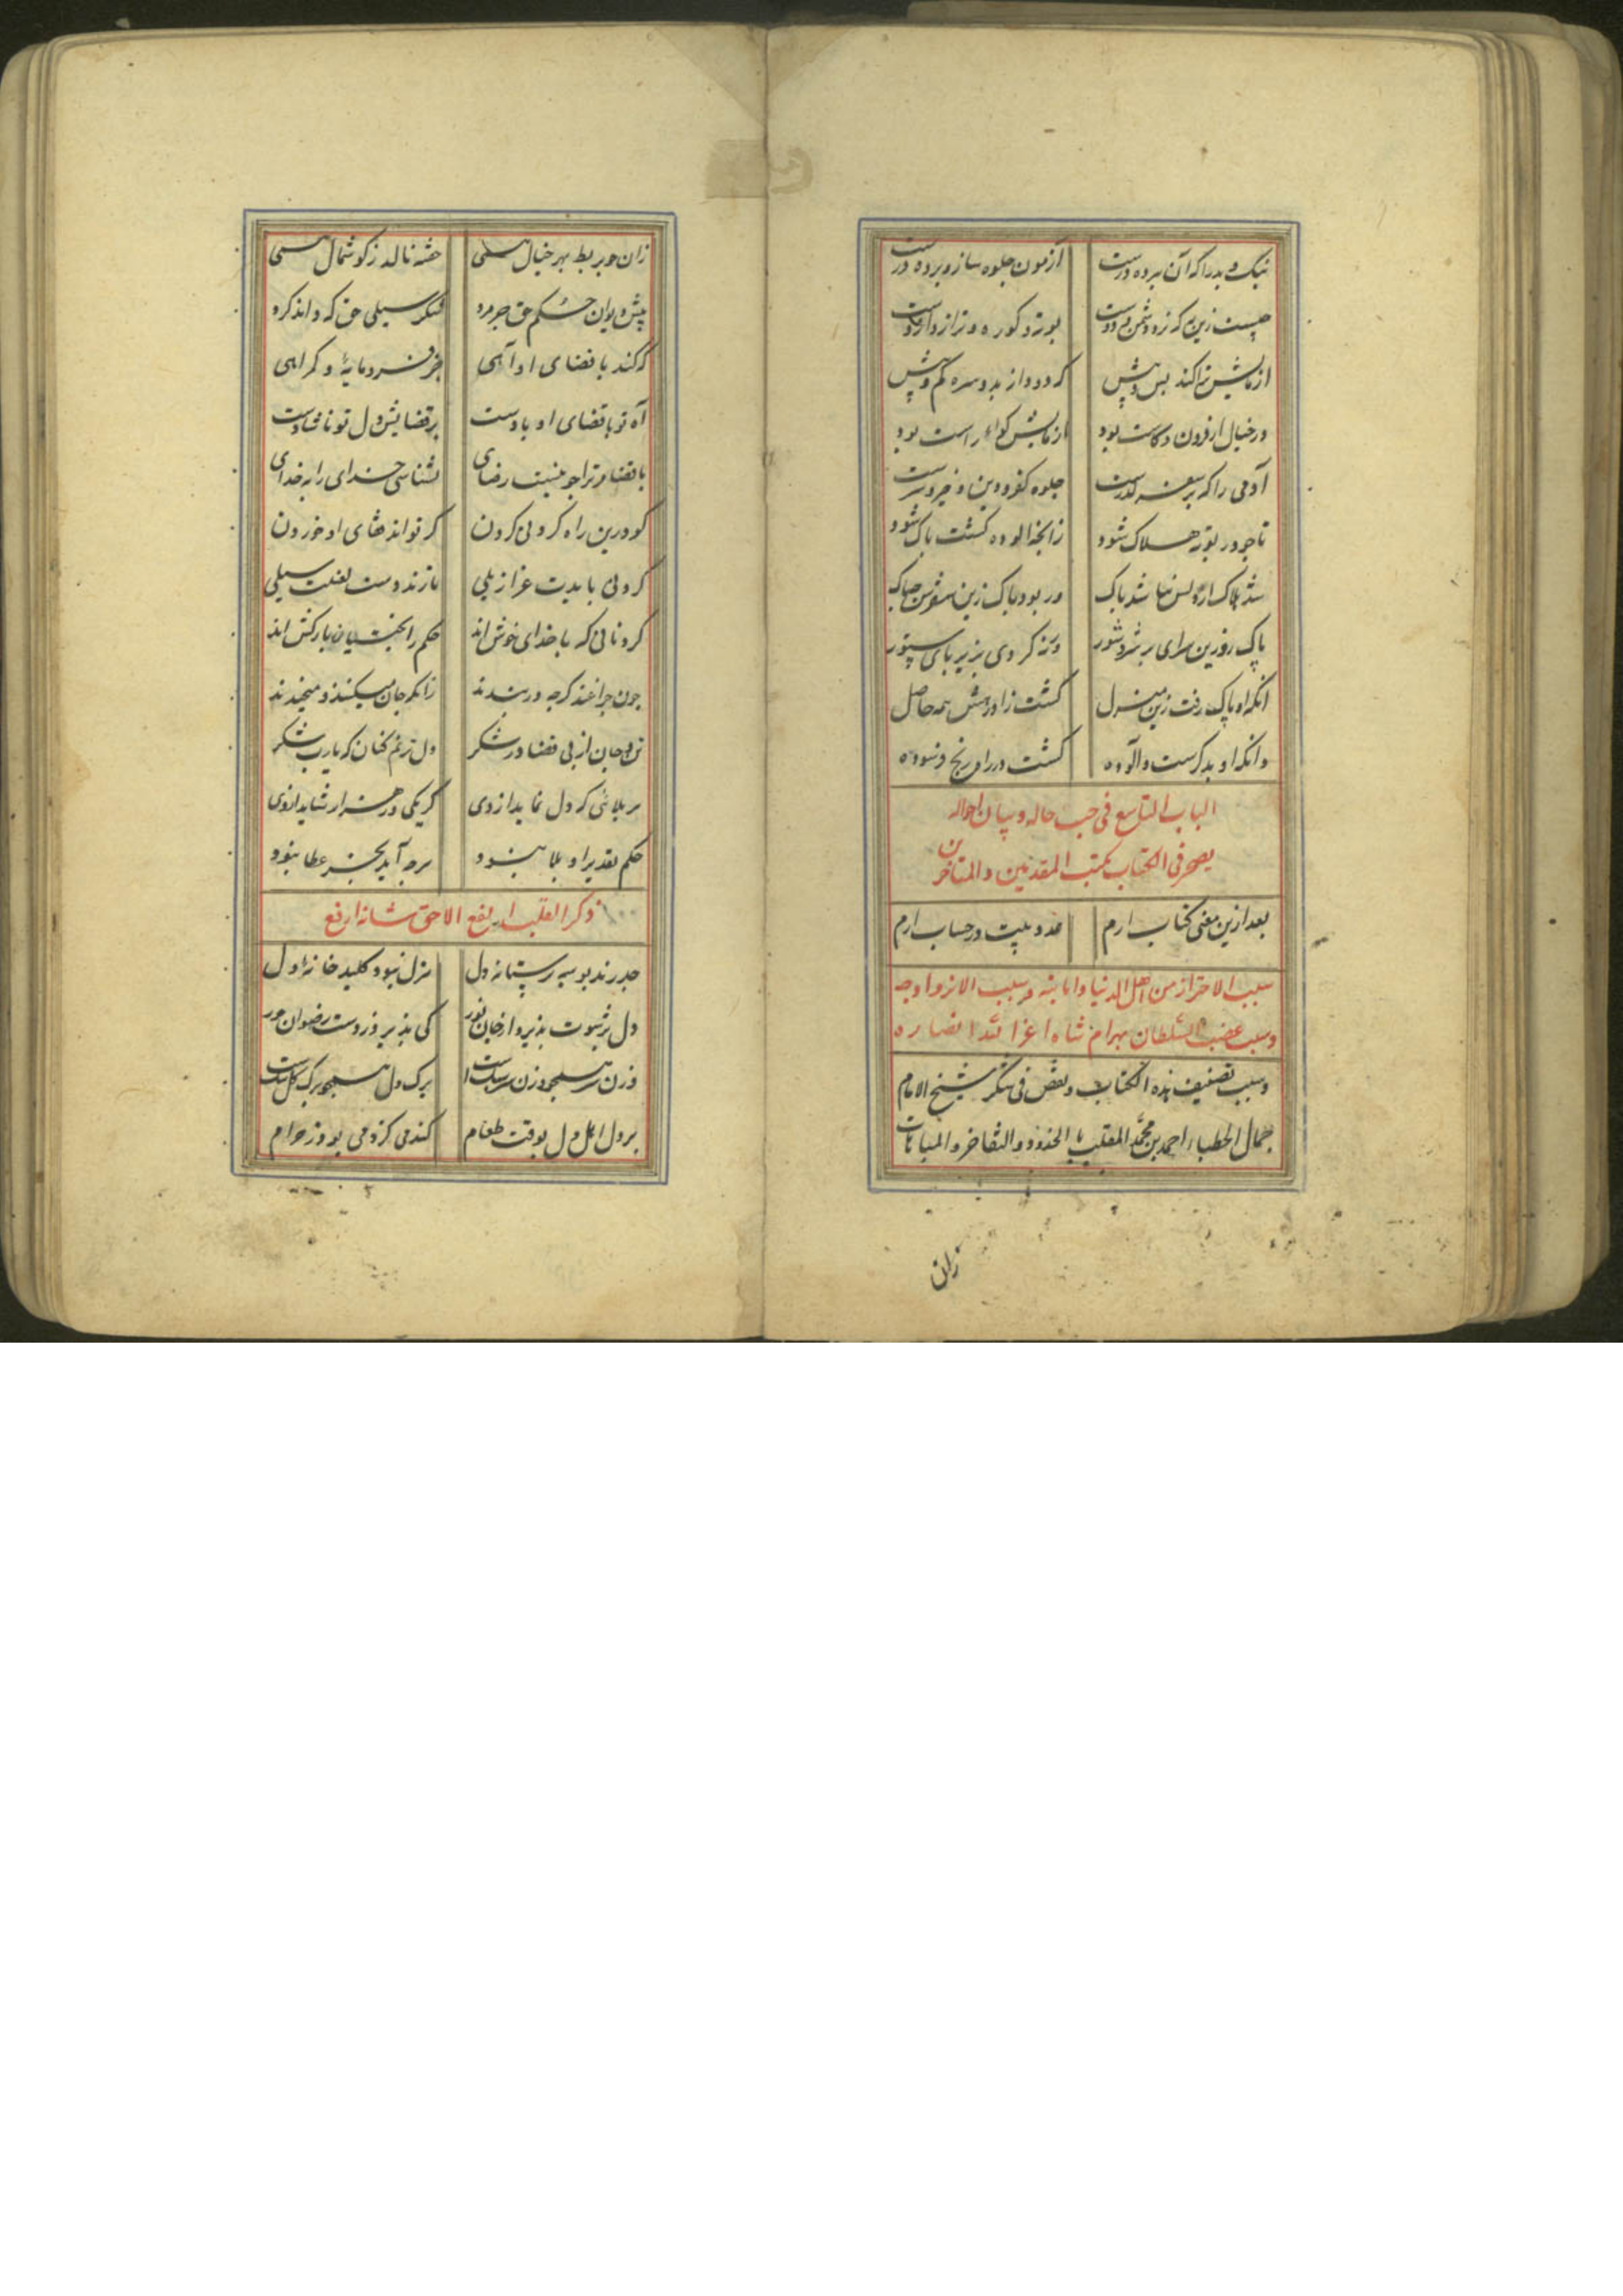 نیک و بد را که آن بپرده درست آزمون جلوه ساز و پرده درست
چیست زین به که نزد دشمن و دوست بوته و کوره و ترازو اوست
ازمایش تبا کند بس و پیش که دود از بد و سره کم و بیش
ور خیال ار فزون و کاست بود ازمایش گواه راست بود
آدمی را که بر سفر گذرست جلوه کفر و دین و خیر و شرست
تا چو در بوته هلاک شود زانچه الوده گشت پاک شود
شد هلاک ار پس نباشد پاک ور بود پاک زین سفر چه باک
پاک رو زین سرای پر شر و شور ورنه کردی بزیر پای ستور
انکه او پاک رفت زین منزل گشت زاد رهش همه حاصل
وانکه او بدگرست و آلوده گشت در راه رنج فرسوده
الباب التاسع فی حسب حاله و بیان احواله
فی الکتاب بکتب المتقدمین والمتاخرین
بعد ازین معنی کتاب ارم مدد بیت در حساب ارم
سبب الاحتراز من اهل الدنیا وابنائه وسبب الانزوا و جه
وسبب غضب السلطان بهرام شاه اعز الله انصاره
وسبب تصنیف هذه الکتاب و نقض فی شکر شیخ الامام
جمال الخطباء احمد بن محمد الملقب بالحذور والتفاخر والمباهات
زان
زان چو بربط بهر خیال همی خشه ناله ز گوشمال همی
پیش دیوان حکم حق چه مرد شکر سیلی حق که داند کرد
که کند با قضای او آهی جز فرومایۀ و گمراهی
آه تو با قضای او بادست بر قضایش دل تو ناشادست
با قضا مر ترا چو نیست رضای نشناسی خدای را بخدای
کو درین راه کردنی کردن گر تواند قفای او خوردن
گردنی بایدت عزازیلی تا زند دوست لعنت سیلی
گردنانی که با خدای خوش اند حکم را بختیان بارکش اند
چون چراغند گرچه در بندند زانکه جان میکنند و میخندند
تن و جان از پی قضا در شکر دل ترنم کنان که یارب شکر
هر بلائی که دل نماید ازوی گر یکی در هزار شاید ازوی
حکم تقدیر او بلا نبود هرچه آید بجز عطا نبود
ذکر القلب انفع الاحق شانه ارفع
چه درند بوسه رستانه دل منزل نبود کلید خانۀ دل
دل پر شهوت پذیرد از جان نور کی پذیرد ز دوست رضوان حور
وزن سر همچو وزن سرسبک است برگ دل همچو برگ گل تنک است
بر دل اهل دل بوقت طعام گندمی کژدمی بود ز حرام